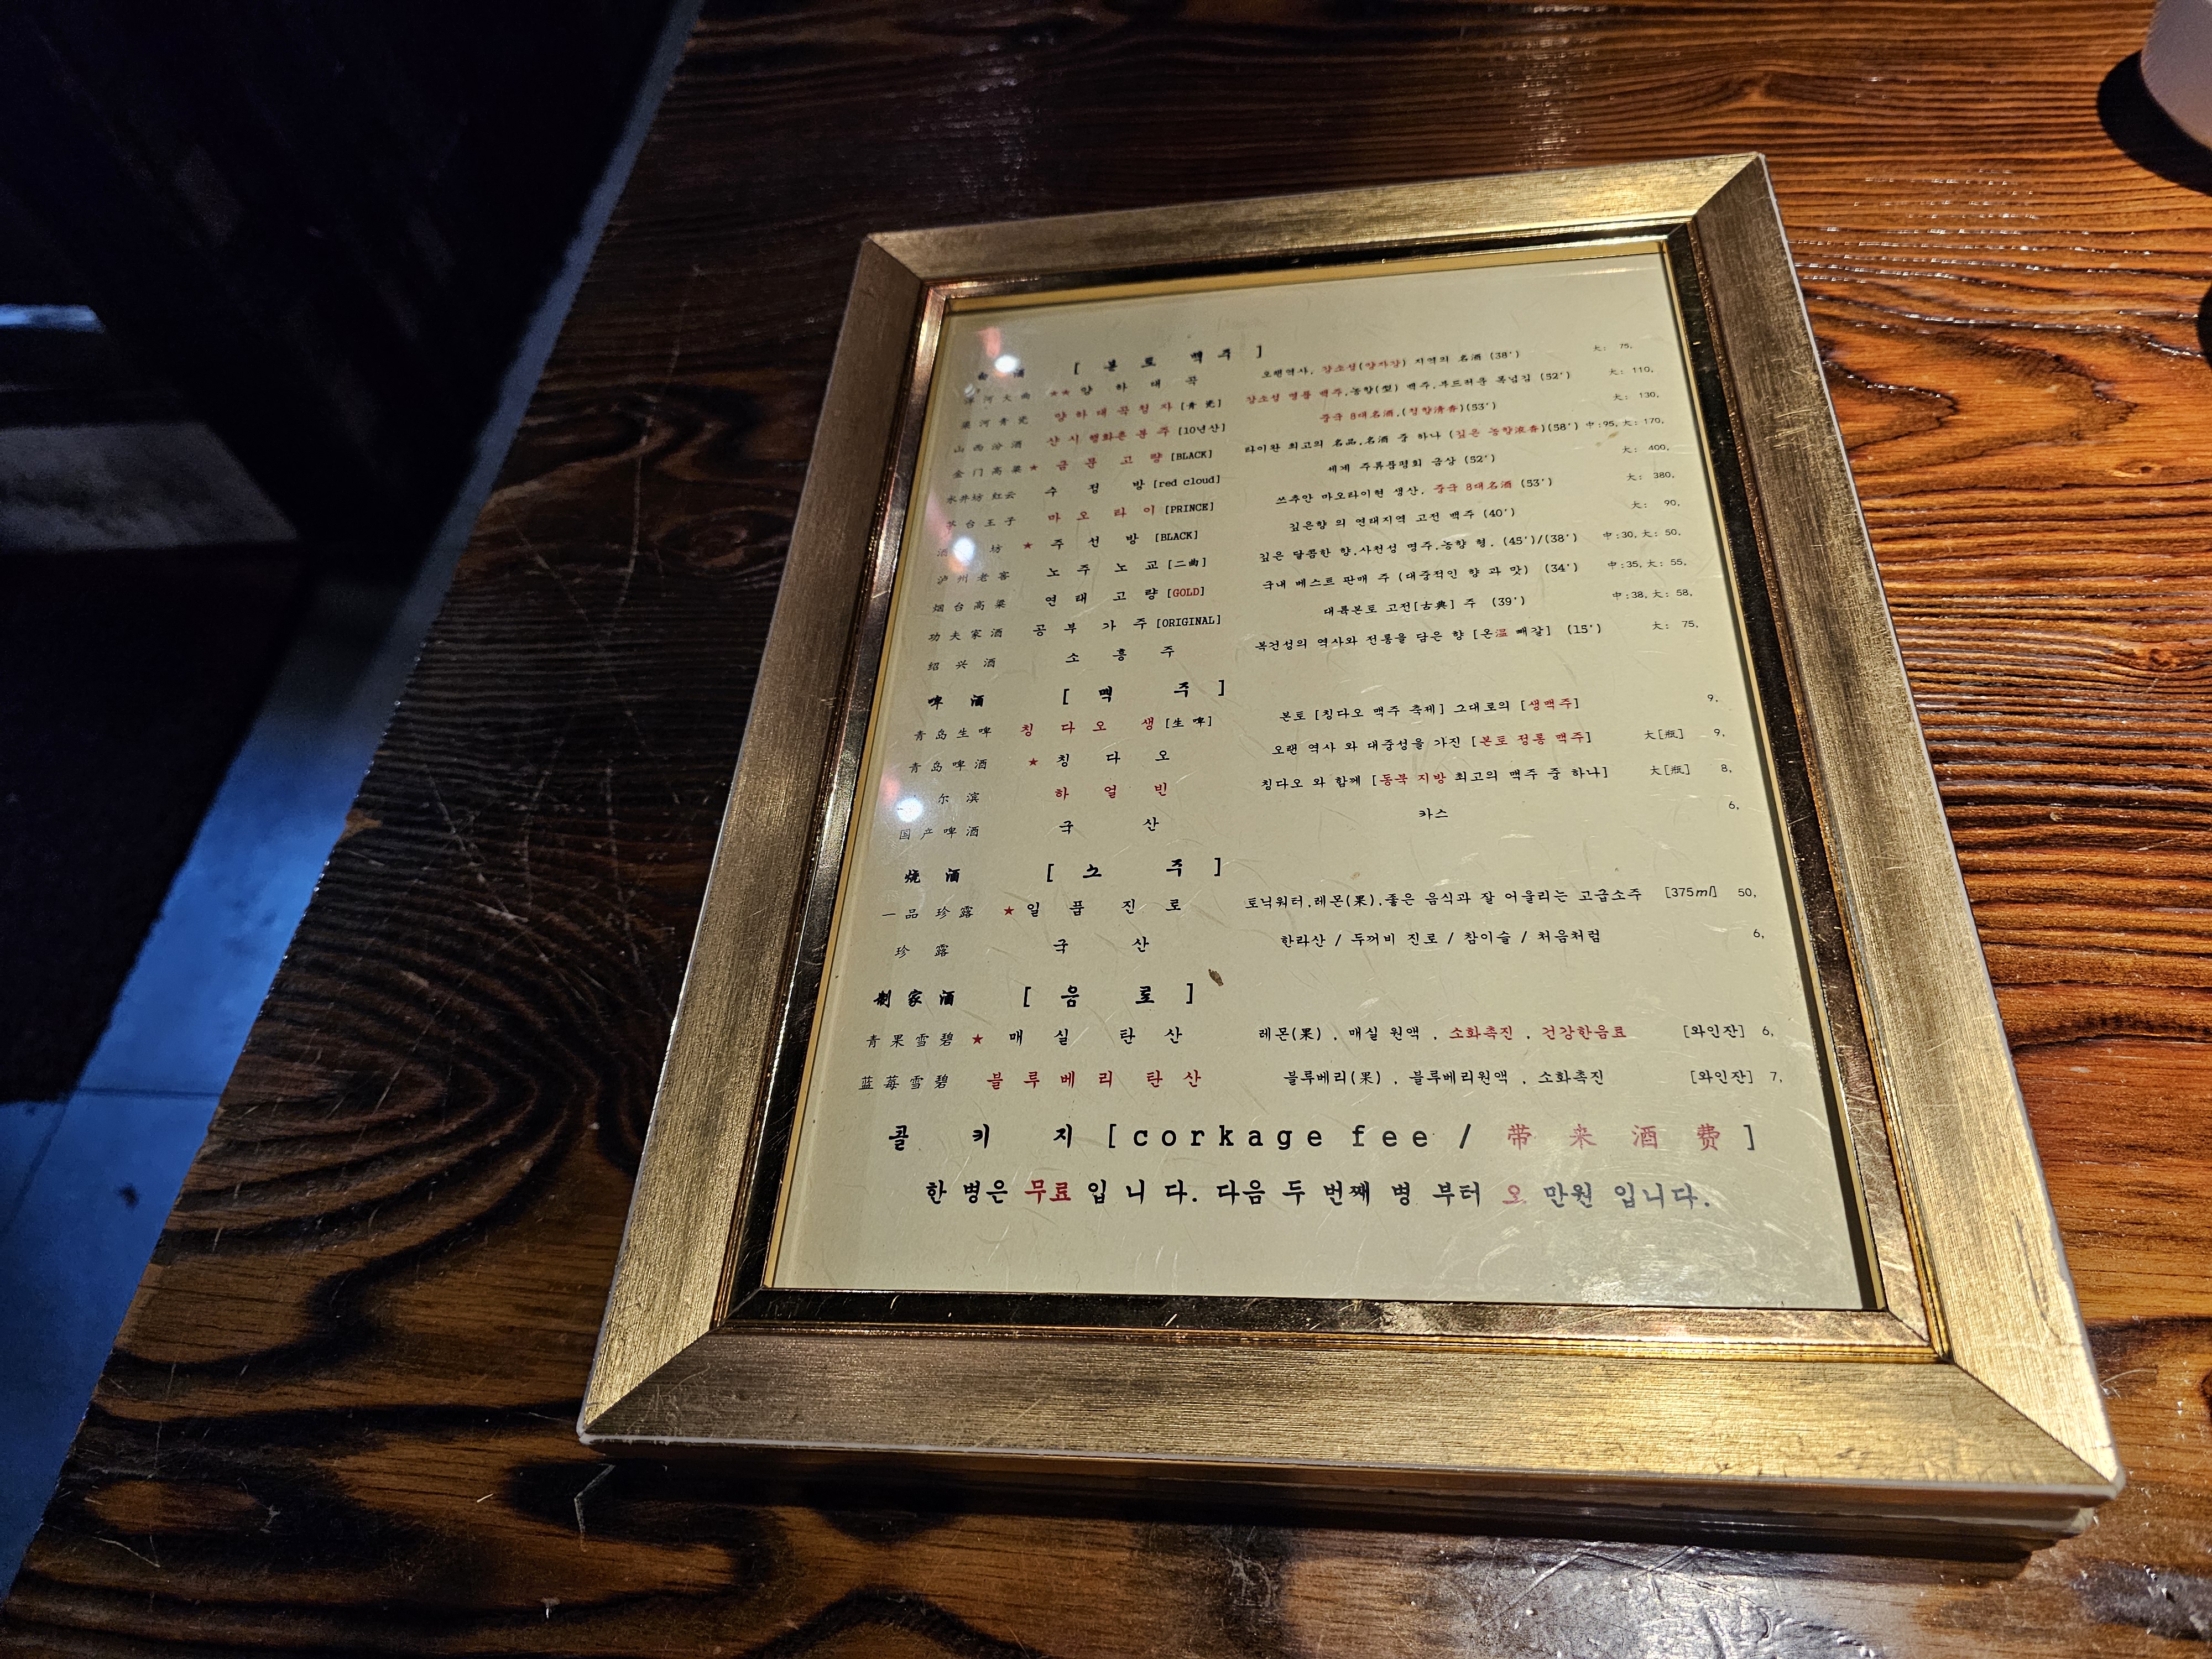 白 酒 [ 본 토 백 주 ]
洋河大曲 ★★ 양 하 대 곡 오랜역사, 강소성(양자강) 지역의 名酒 (38°) 大: 75,
河青瓷 양하대곡청자 [青瓷] 강소성 명품 백주,농향(型) 백주,부드러운 목넘김 (52°) 大: 110,
山西汾酒 산시행화촌분주 [10년산] 중국 8대名酒,(청향清香)(53°) 大: 130,
金门高粱 ★ 금 문 고 량 [BLACK] 타이완 최고의 名品,名酒 중 하나 (깊은 농향浓香)(58°) 中:95, 大: 170,
水井坊 红云 수 정 방 [red cloud] 세계 주류품평회 금상 (52°) 大: 400,
台王子 마 오 타 이 [PRINCE] 쓰추안 마오타이현 생산, 중국 8대名酒 (53°) 大: 380,
酒 坊 ★ 주 선 방 [BLACK] 깊은향 의 연태지역 고전 백주 (40°) 大: 90,
泸州老窖 노 주 노 교 [二曲] 깊은 달콤한 향,사천성 명주,농향 형. (45°)/(38°) 中:30, 大: 50,
烟台高粱 연 태 고 량 [GOLD] 국내 베스트 판매 주 (대중적인 향 과 맛) (34°) 中:35, 大: 55,
功夫家酒 공 부 가 주 [ORIGINAL] 대륙본토 고전[古典] 주 (39°) 中:38, 大: 58,
绍兴酒 소 흥 주 복건성의 역사와 전통을 담은 향 [온温 빼갈] (15°) 大: 75,
啤 酒 [ 맥 주 ]
青岛生啤 칭 다 오 생 [生啤] 본토 [칭다오 맥주 축제] 그대로의 [생맥주] 9,
青岛啤酒 ★ 칭 다 오 오랜 역사 와 대중성을 가진 [본토 정통 맥주] 大[瓶] 9,
尔滨 하 얼 빈 칭다오 와 함께 [동북 지방 최고의 맥주 중 하나] 大[瓶] 8,
国产啤酒 국 산 카스 6,
烧 酒 [ 소 주 ]
一品 珍露 ★ 일 품 진 로 토닉워터,레몬(果),좋은 음식과 잘 어울리는 고급소주 [375ml] 50,
珍 露 국 산 한라산 / 두꺼비 진로 / 참이슬 / 처음처럼 6,
制家酒 [ 음 료 ]
青果雪碧 ★ 매 실 탄 산 레몬(果) , 매실 원액 , 소화촉진 , 건강한음료 [와인잔] 6,
蓝莓雪碧 블루베리 탄산 블루베리(果) , 블루베리원액 , 소화촉진 [와인잔] 7,
콜 키 지 [corkage fee / 带 来 酒 费 ]
한 병은 무료 입 니 다. 다음 두 번째 병 부터 오 만원 입니다.